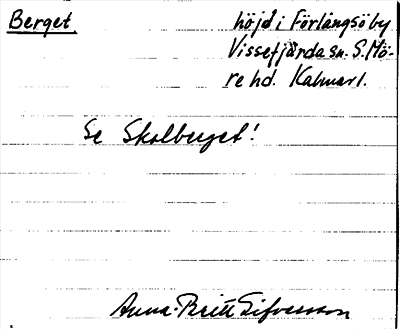 Berget. höjd i Förlångsö by
Vissefjärda sn. S. Mö-
re hd. Kalmar l.
Se Skolberget!
Anna-Britt Sifversson